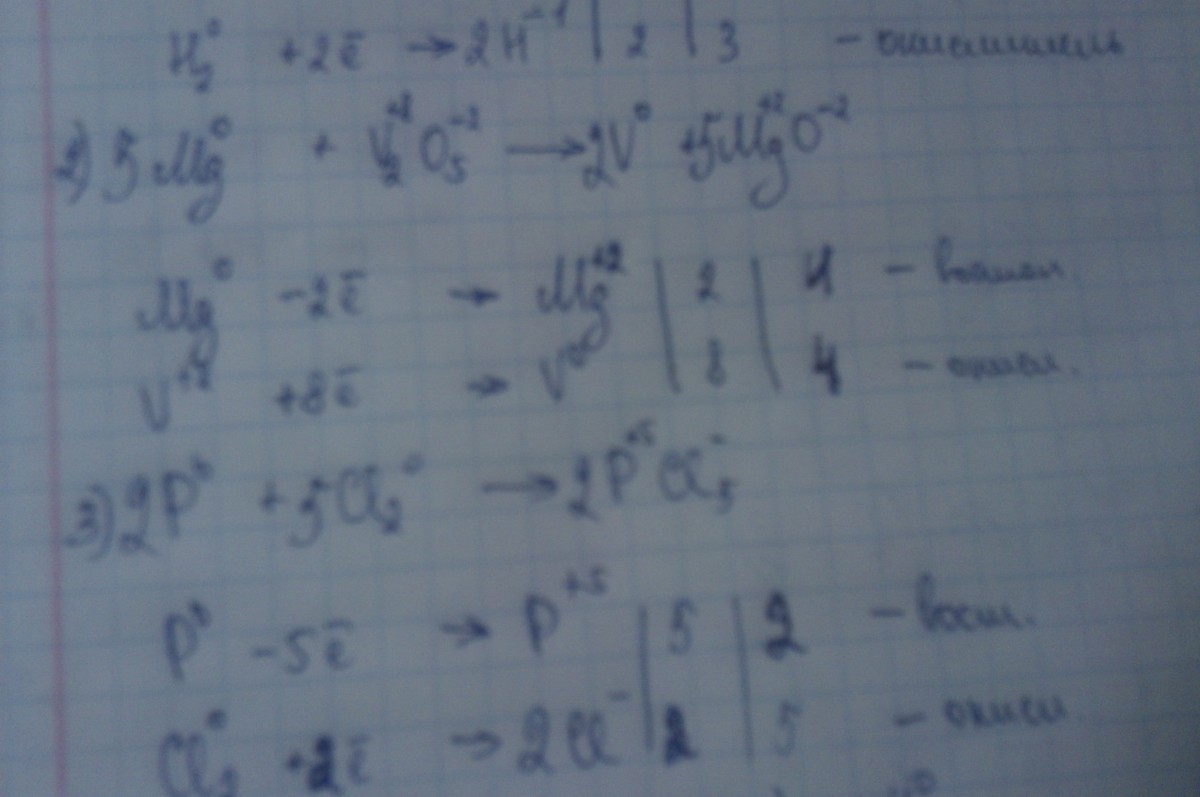 H₂⁰ +2ē → 2H⁻¹ | 2 | 3 – окислитель
2) 5Mg⁰ + V₂O₅⁻² → 2V⁰ +5Mg⁺²O⁻²
Mg⁰ -2ē → Mg⁺² | 2 | – восст.
+8ē → V⁰ | 8 | 4 – окисл.
3) 2P⁰ + 5Cl₂⁰ → 2P⁺⁵Cl₅⁻
P⁰ -5ē → P⁺⁵ | 5 | 2 – восст.
Cl₂⁰ +2ē → 2Cl⁻ | 2 | 5 – окисл